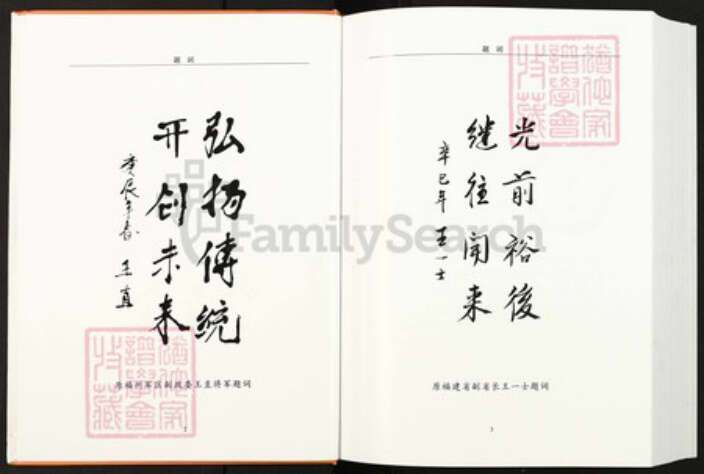 题 词
弘扬傳統
开创未来
庚辰年春 王直
原福州军区副政委王直将军题词
题 词
光前裕後
继往开来
辛巳年 王一士
原福建省副省长王一士题词
3
FamilySearch